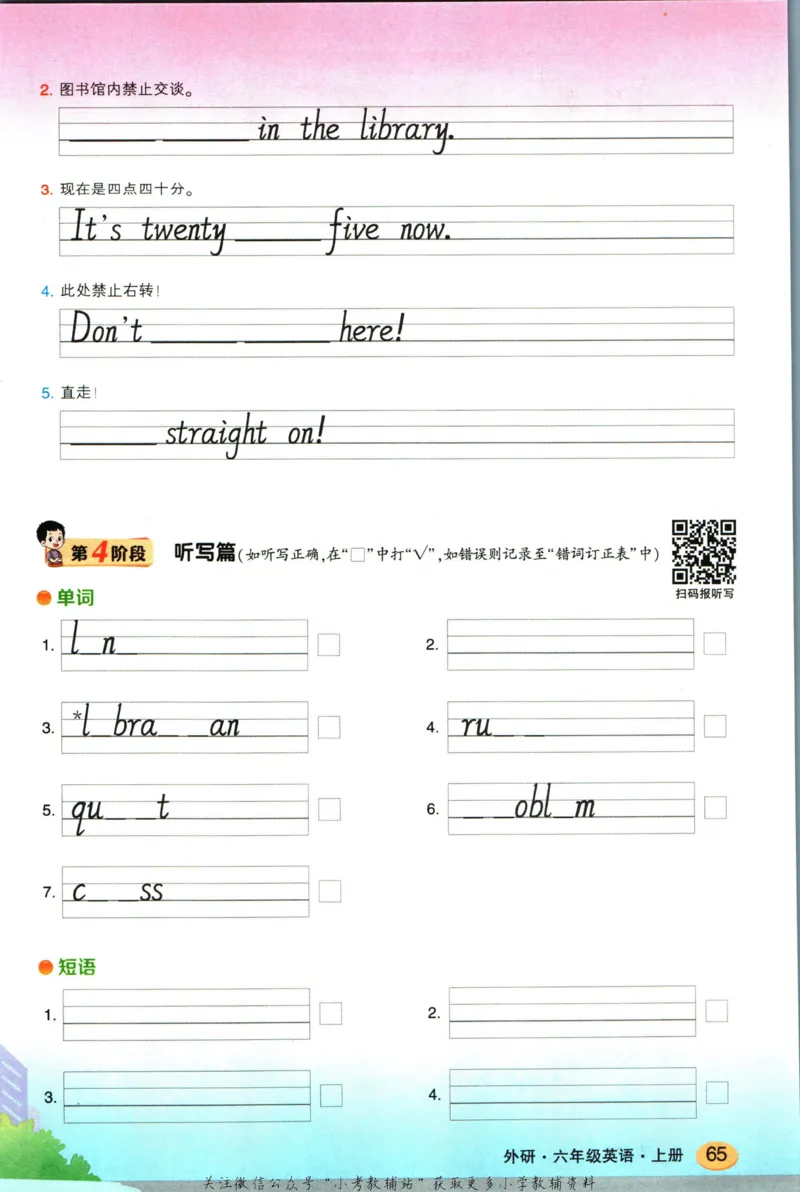 2. 图书馆内禁止交谈。
______ ______ in the library.
3. 现在是四点四十分。
It's twenty ______ five now.
4. 此处禁止右转!
Don't ______ ______ here!
5. 直走!
______ straight on!
第4阶段 听写篇(如听写正确,在“□”中打“√”,如错误则记录至“错词订正表”中)
扫码报听写
单词
1. l_n_ □ 2. □
3. *l_bra_ _an □ 4. ru_ _ □
5. qu_ _t □ 6. _ _obl_m □
7. c_ _ss □
短语
1. □ 2. □
3. □ 4. □
外研·六年级英语·上册 65
关注微信公众号“小考教辅站”获取更多小学教辅资料